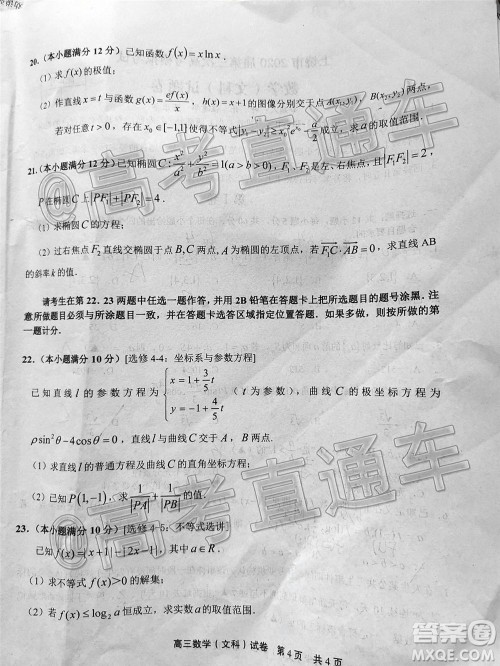 20.(本小题满分 12 分) 已知函数 f(x)=xlnx.
(1) 求 f(x) 的极值;
(2) 作直线 x=t 与函数 g(x)=ef(x)/x, h(x)=x+1
若对任意 t>0, 存在 x₀∈[-1,1]使得
求 a 的取值范围.
21.(本小题满分 12 分) 已知椭圆 C: x²/a²+y²/b²=1(a>b>0), F₁、F₂为左、右焦点, 且|F₁F₂|=2,
P在椭圆 C 上|PF₁|+|PF₂|=4.
(1) 求椭圆 C 的方程;
(2) 过右焦点 F₂ 直线交椭圆于 B、C 两点, A 为椭圆的左顶点, 若 F₂C·AB=0, 求直线 AB
的斜率 k 的值.
请考生在第 22、23 两题中任选一题作答, 并用 2B 铅笔在答题卡上把所选题目的题号涂黑. 注
意所做题目必须与所涂题目一致, 并在答题卡选答区域指定位置答题. 如果多做, 则按所做的第
一题计分.
22.(本小题满分 10 分) [选修 4-4: 坐标系与参数方程]
已知直线 l 的参数方程为 {x=1+3/5t
y=-1+4/5t (t 为参数), 曲线 C 的极坐标方程为
ρsin²θ-4cosθ=0, 直线 l 与曲线 C 交于 A、B 两点.
(1) 求直线 l 的普通方程及曲线 C 的直角坐标方程;
(2) 已知 P(1,-1), 求 |1/|PA|-1/|PB|| 的值.
23.(本小题满分 10 分) [选修 4-5: 不等式选讲]
已知 f(x)=|x+1|-|2x-1|, 其中 a∈R.
(1) 求不等式 f(x)>0 的解集;
(2) 若 f(x)≤log₂a 恒成立, 求实数 a 的取值范围.
高三数学(文科)试卷 第4页 共4页
@高考直通车
@高考直通车
@高考直通车
答案圈